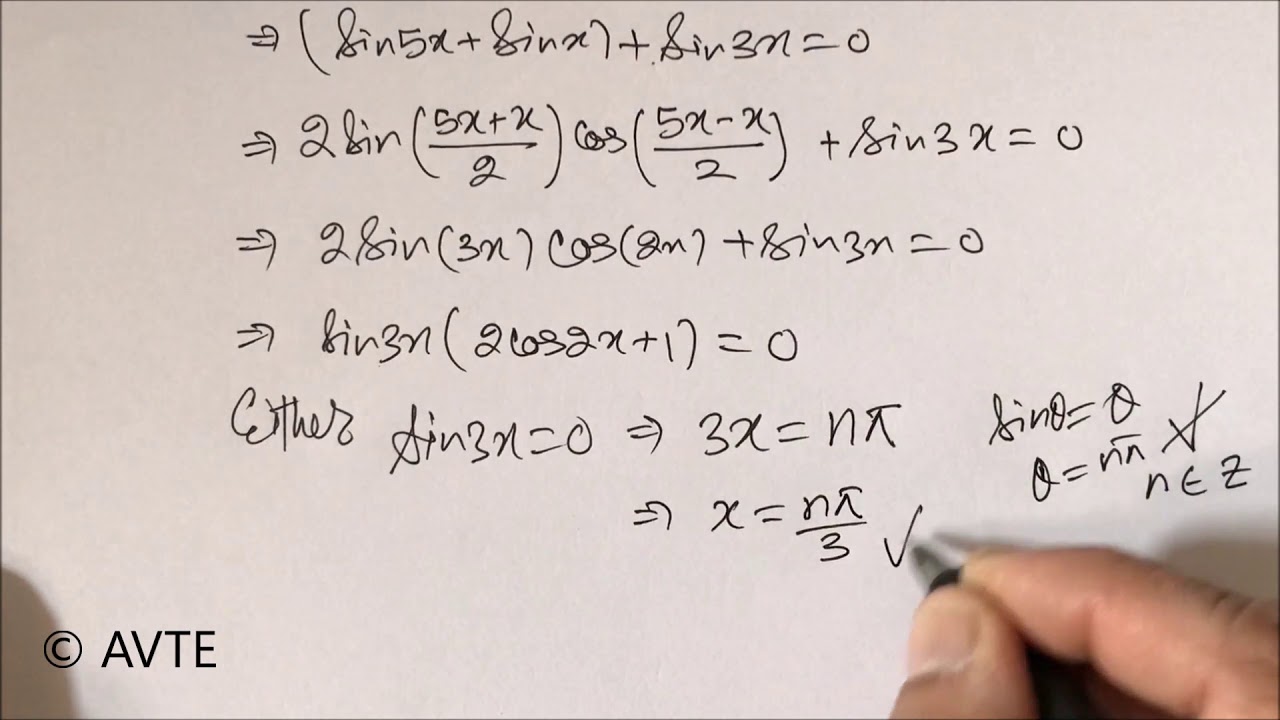 ⇒ (Sin5x + Sinx) + Sin3x = 0
⇒ 2Sin((5x+x)/2) cos((5x-x)/2) + Sin3x = 0
⇒ 2Sin(3x) Cos(2x) + Sin3x = 0
⇒ Sin3x (2cos2x+1) = 0
Either Sin3x=0 ⇒ 3x = nπ
⇒ x = nπ/3 ✓
Sinθ = 0
θ = nπ
n ∈ Z
© AVTE